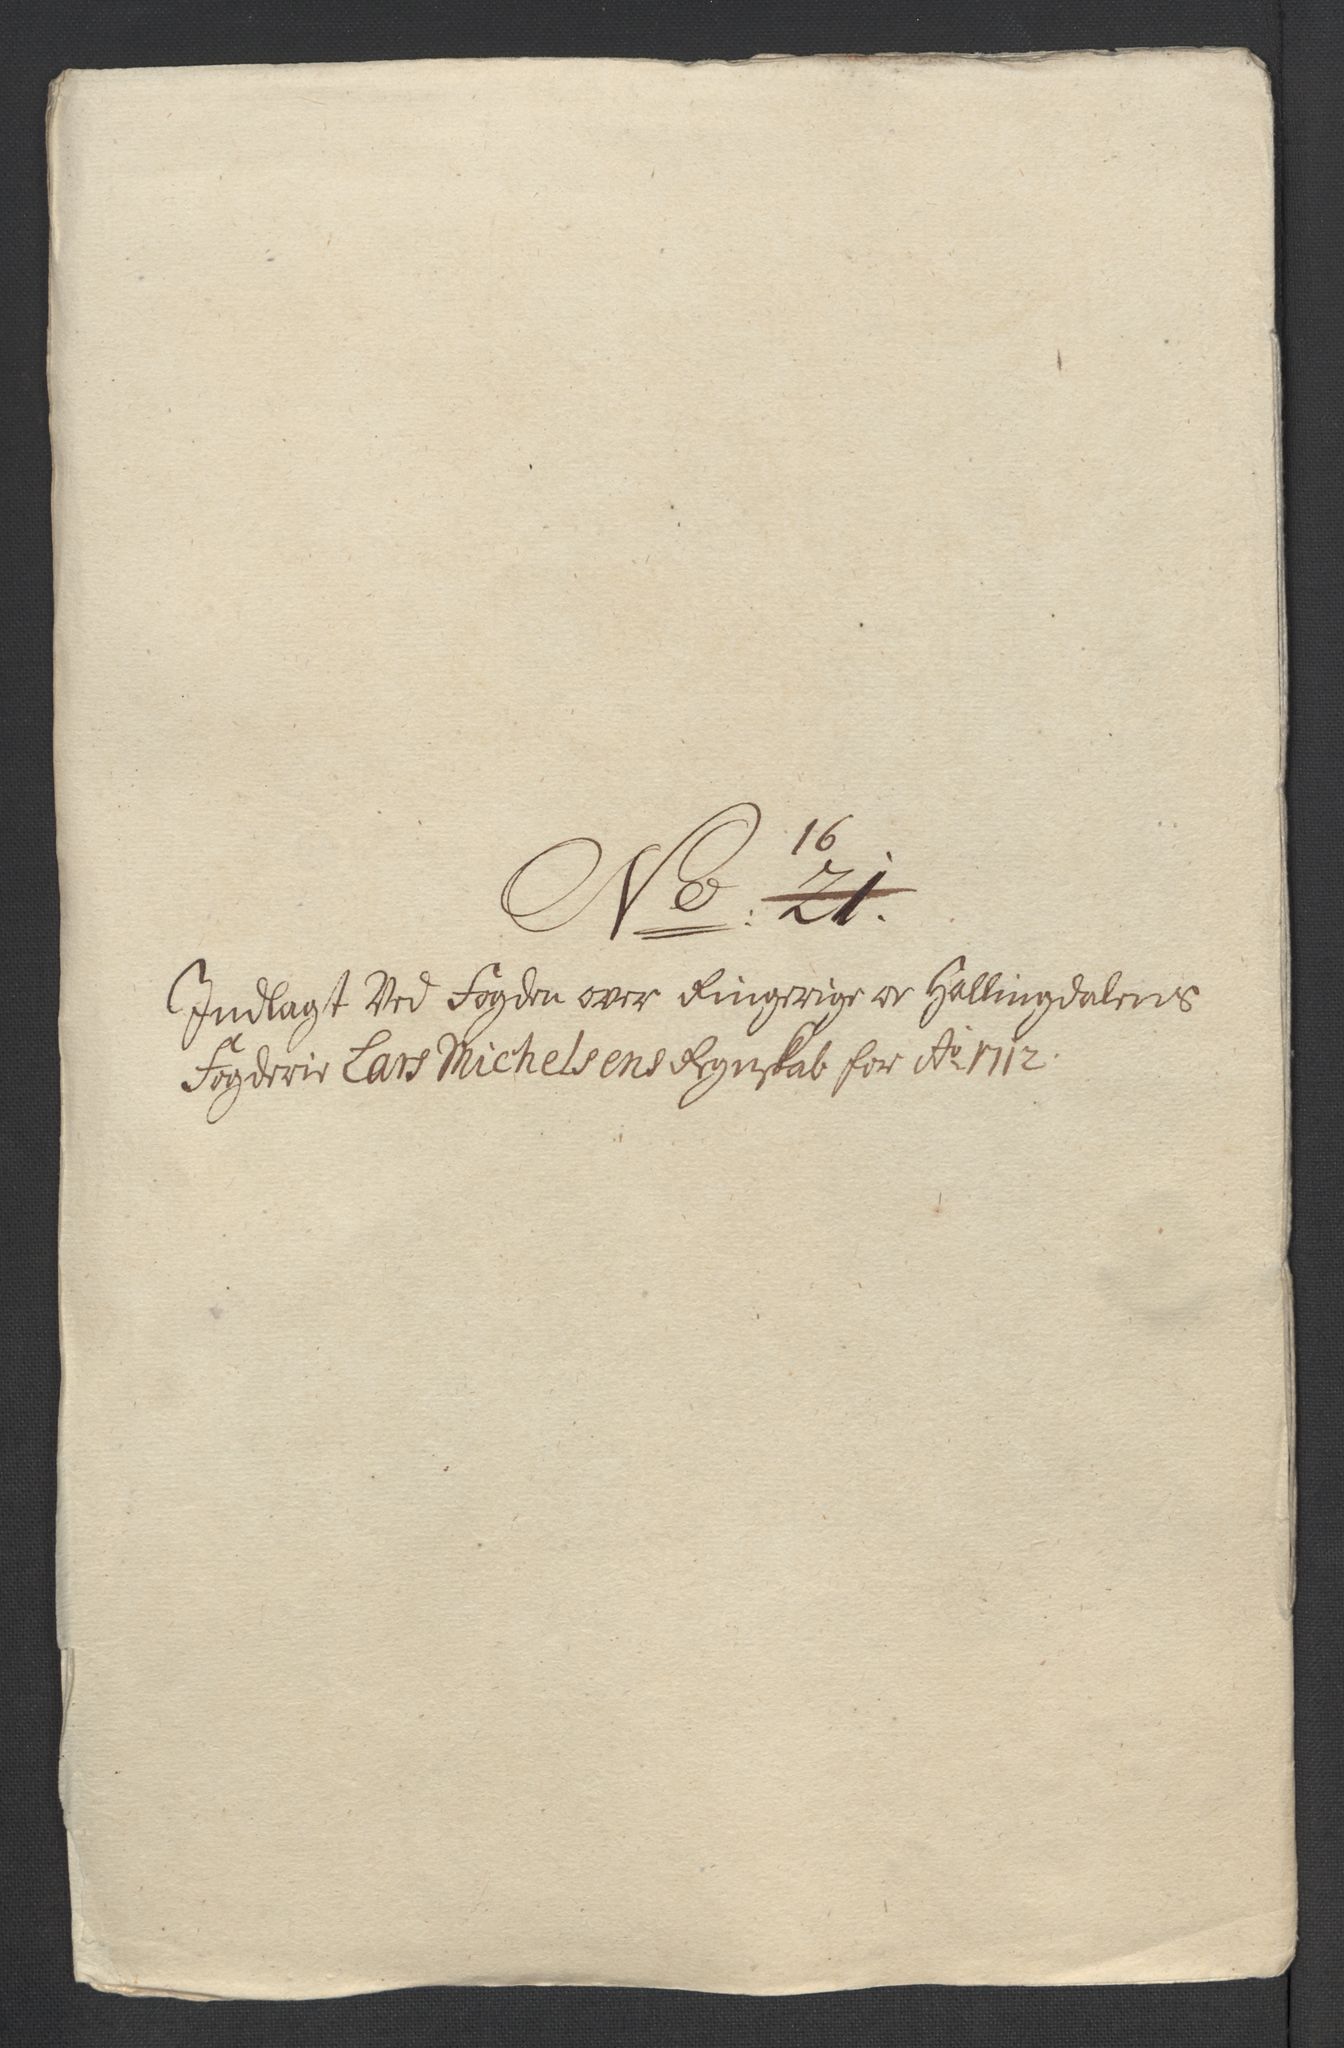 16
No: 21.
Indlagt Ved Fogden over Ringerige oc Hallingdalens
Fogderie Lars Michelsens Regnskab for Ao 1712.